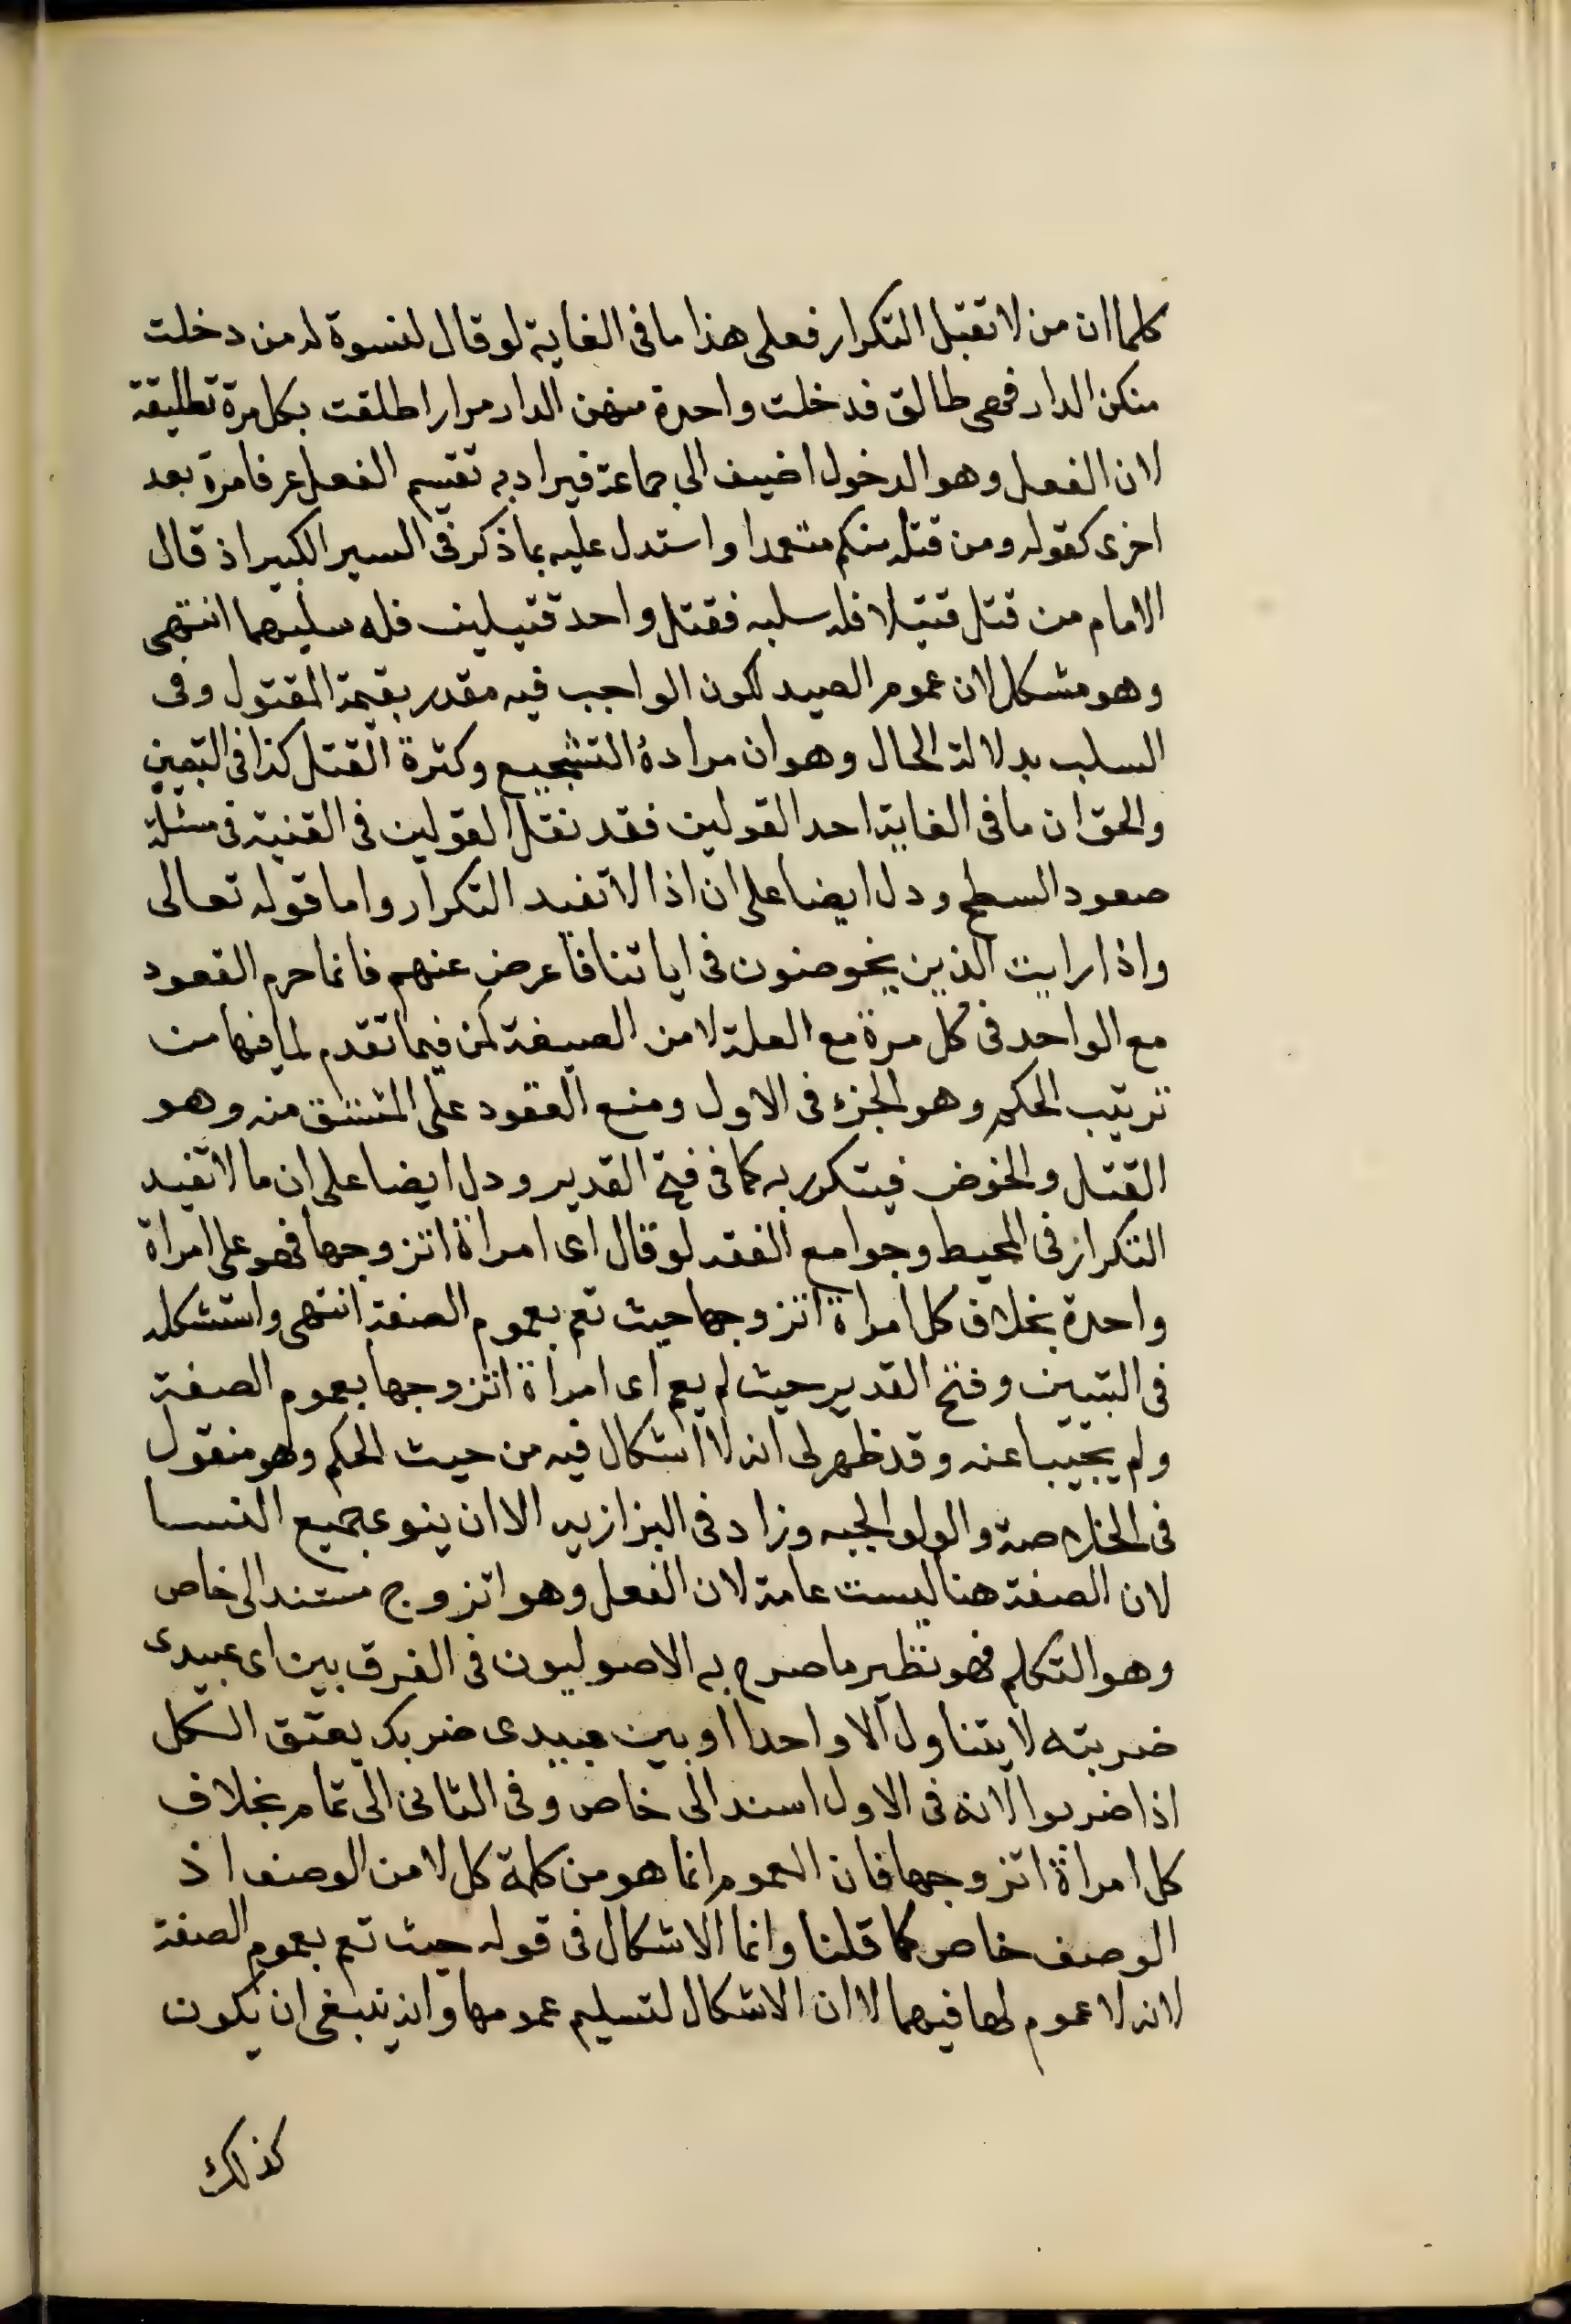 كلما ان من لا تقبل التكرار فعلى هذا ما فى الغاية لو قال لنسوة له من دخلت
منكن الدار فهى طالق فدخلت واحدة منهن الدار مرارا طلقت بكل مرة تطليقة
لان الفعل وهو الدخول اضيف الى جماعة فيراد به تقسيم الفعل عرفا مرة بعد
اخرى كقوله ومن قتله منكم متعمدا واستدل عليه بما ذكر فى السير الكبير اذ قال
الامام من قتل قتيلا فله سلبه فقتل واحد قتيلين فله سلبهما انتهى
وهو مشكل لان عموم الصيد لكون الواجب فيه مقدر بقيمة المقتول وفى
السلب بدلالة الحال وهو ان مراده التشجيع وكثرة القتل كذا فى التبيين
والحق ان ما فى الغاية احد القولين فقد نقل القولين فى القنية فى مسئلة
صعود السطح ودل ايضا على ان اذا لا تفيد التكرار واما قوله تعالى
واذا رايت الذين يخوضون فى اياتنا فاعرض عنهم فانما حرم القعود
مع الواحد فى كل مرة مع العلة لا من الصيغة لمن فيما تقدم لما فيها من
ترتيب الحكم وهو الجزء فى الاول ومنع القعود على المشتق منه وهو
القتل والخوض فيتكرر به كما فى فتح القدير ودل ايضا على ان ما لا تفيد
التكرار فى المحيط وجوامع الفقه لو قال اى امراة اتزوجها فهو على امراة
واحدة بخلاف كل امراة اتزوجها حيث تعم بعموم الصفة انتهى واستشكله
فى التبيين وفتح القدير حيث لم يعم اى امراة اتزوجها بعموم الصفة
ولم يجيبا عنه وقد ظهر لى انه لا اشكال فيه من حيث الحكم وهو منقول
فى الخلاصة والولوالجيه وزاد فى البزازيه الا ان ينوى جميع النسا
لان الصفة هنا ليست عامة لان الفعل وهو اتزوج مستند الى خاص
وهو التكلم فهو نظير ما صرح به الاصوليون فى الفرق بين اى عبيدى
ضربته لا يتناول الا واحدا او بين عبيدى ضربك يعتق الكل
اذا ضربوا لانه فى الاول اسند الى خاص وفى الثانى الى تمام بخلاف
كل امراة اتزوجها فان العموم انما هو من كلمة كل لا من الوصف اذ
الوصف خاص كما قلنا وانما الاشكال فى قوله حيث تعم بعموم الصفة
لانه لا عموم لها فيهما لا ان الاشكال لتسليم عمومها وانه ينبغى ان يكون
كذلك